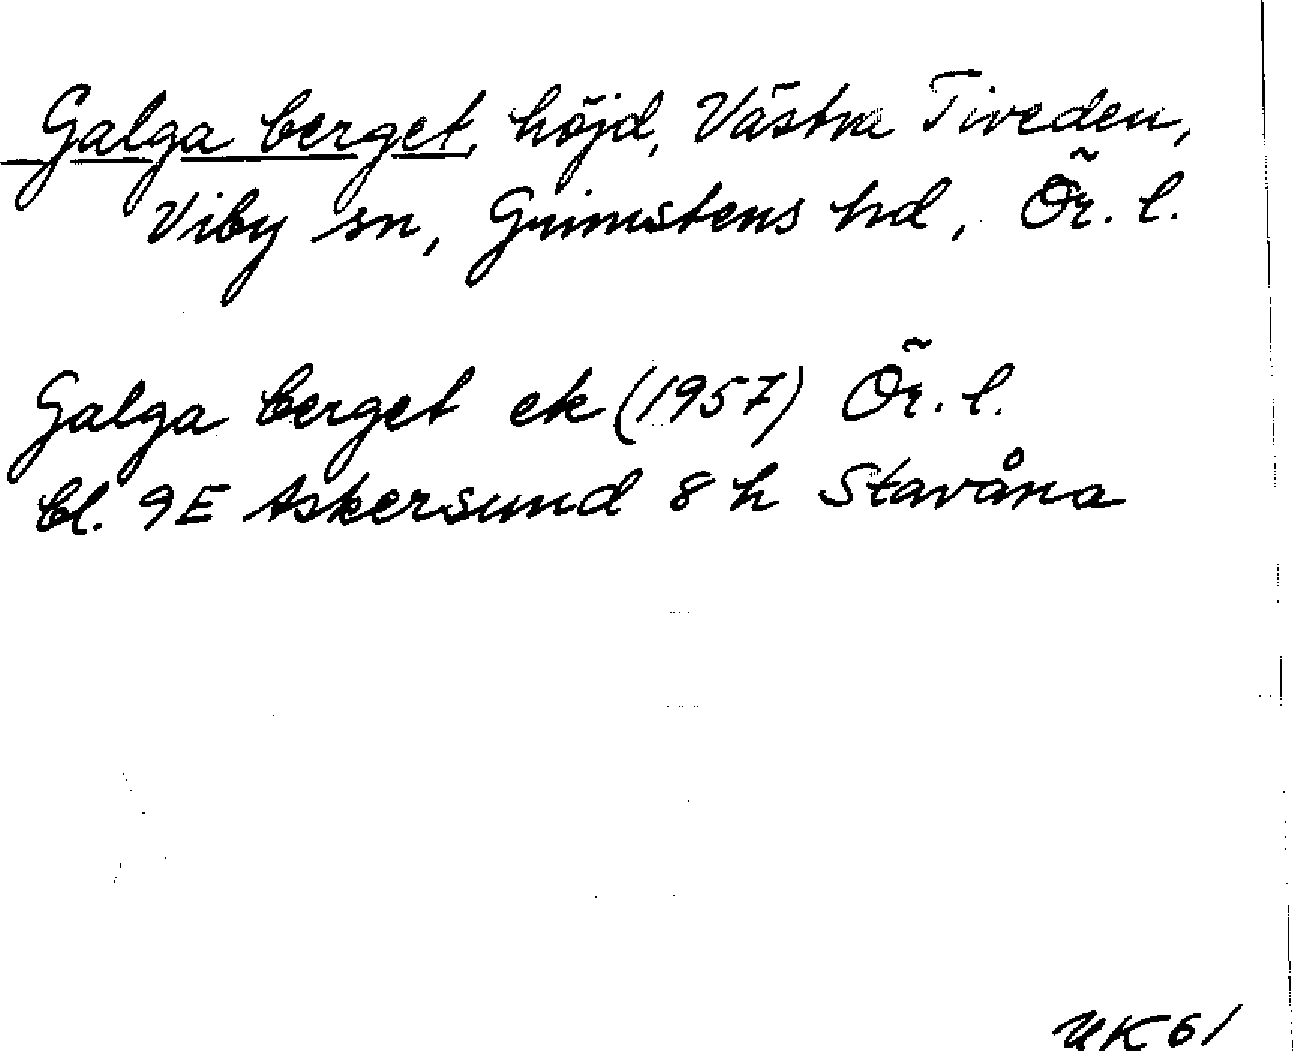 Galga berget, höjd, Västra Tiveden,
Viby sn, Grimstens hd, Ör. l.
Galga berget ek (1957) Ör. l.
bl. 9E Askersund 8 h Stavåna
UK 61